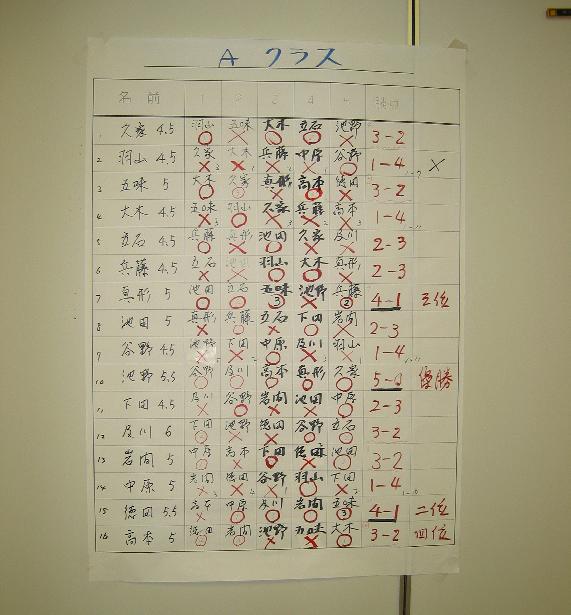 A クラス
名前 1 2 3 4
1 久家 4.5 羽山 五味 大木 立石 池野 3-2
2 羽山 4.5 久家 大木 兵藤 中原 谷野 1-4 ×
3 五味 5 大木 久家 真形 高本 徳田 3-2
4 大木 4.5 五味 羽山 久家 兵藤 高本 1-4
5 立石 4.5 兵藤 真形 池田 久家 及川 2-3
6 兵藤 4.5 立石 池田 羽山 大木 真形 2-3
7 真形 5 池田 立石 五味 池野 兵藤 4-1 三位
8 池田 5 真形 兵藤 立石 下田 岩間 2-3
9 谷野 4.5 池野 下田 中原 及川 羽山 1-4
10 池野 5.5 谷野 及川 高本 真形 久家 5-0 優勝
11 下田 4.5 及川 谷野 岩間 池田 中原 2-3
12 及川 6 下田 池野 徳田 谷野 立石 3-2
13 岩間 5 中原 高本 下田 徳田 池田 3-2
14 中原 5 岩間 徳田 谷野 羽山 下田 1-4
15 徳田 5.5 高本 中原 及川 岩間 五味 4-1 二位
16 高本 5 徳田 岩間 池野 五味 大木 3-2 四位